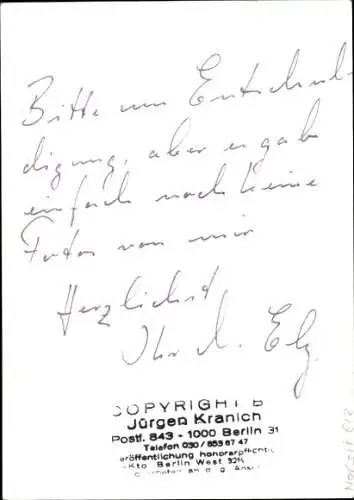 Bitte um Entschul-
digung, aber es gab
einfach noch keine
Fotos von mir
Herzlichst
Ihr
COPYRIGHT B
Jürgen Kranich
Postf. 843 - 1000 Berlin 31
Telefon 030 / 853 87 47
eröffentlichung honorarpflichtig
Kto Berlin West